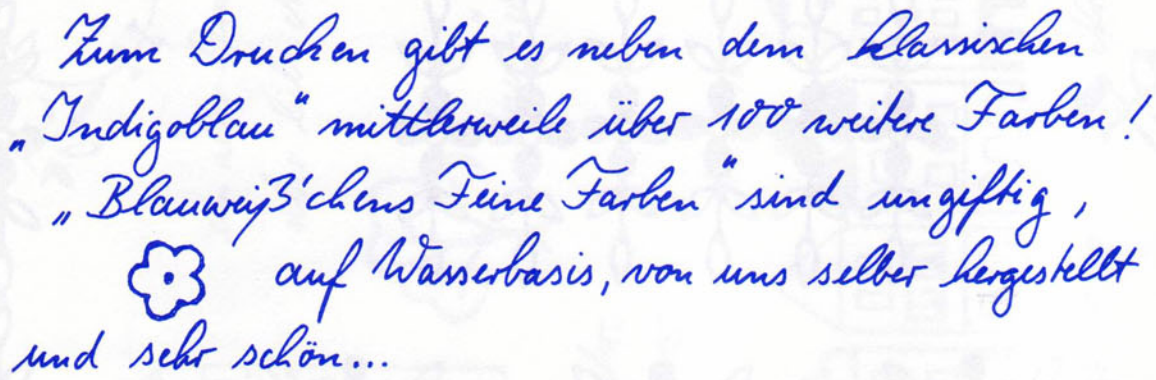 Zum Drucken gibt es neben dem klassischen
„Indigoblau“ mittlerweile über 100 weitere Farben!
„Blauweiß'chens Feine Farben“ sind ungiftig,
auf Wasserbasis, von uns selber hergestellt
und sehr schön...